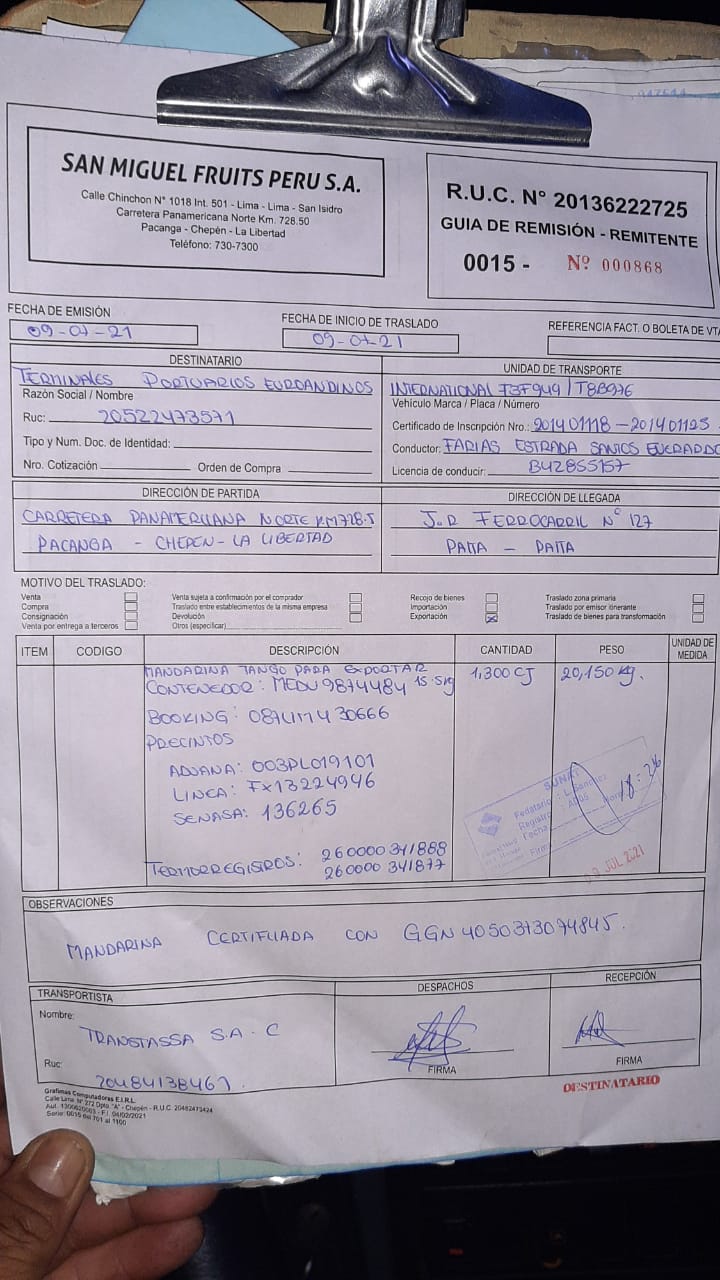 SAN MIGUEL FRUITS PERU S.A.
Calle Chinchon N° 1018 Int. 501 - Lima - Lima - San Isidro
Carretera Panamericana Norte Km. 728.50
Pacanga - Chepén - La Libertad
Teléfono: 730-7300
R.U.C. N° 20136222725
GUIA DE REMISIÓN - REMITENTE
0015 - Nº 000868
FECHA DE EMISIÓN
09-07-21
FECHA DE INICIO DE TRASLADO
09-07-21
REFERENCIA FACT. O BOLETA DE VTA
DESTINATARIO
TERMINALES PORTUARIOS EUROANDINOS
Razón Social / Nombre
Ruc: 20522473571
Tipo y Num. Doc. de Identidad:
Nro. Cotización Orden de Compra
UNIDAD DE TRANSPORTE
INTERNATIONAL T3F949 / T8B976
Vehículo Marca / Placa / Número
Certificado de Inscripción Nro.: 201401118-201401125
Conductor: FARIAS ESTRADA SANTOS EVERARDO
Licencia de conducir: B42855157
DIRECCIÓN DE PARTIDA
CARRETERA PANAMERICANA NORTE KM728.5
PACANGA - CHEPEN - LA LIBERTAD
DIRECCIÓN DE LLEGADA
J.R FERROCARRIL N° 127
PAITA - PAITA
MOTIVO DEL TRASLADO:
Venta
Compra
Consignación
Venta por entrega a terceros
Venta sujeta a confirmación por el comprador
Traslado entre establecimientos de la misma empresa
Devolución
Otros (especificar)
Recojo de bienes
Importación
Exportación X
Traslado zona primaria
Traslado por emisor itinerante
Traslado de bienes para transformación
ITEM CODIGO DESCRIPCIÓN CANTIDAD PESO UNIDAD DE MEDIDA
MANDARINA TANGO PARA EXPORTAR 1,300 CJ 20,150 Kg.
CONTENEDOR: MEDU9874484 15.5Kg
BOOKING: 087LIMA430666
PRECINTOS
ADUANA: 003PL019101
LINEA: FX13224946
SENASA: 136265
TERMORREGISTROS: 260000 341888
260000 341877
SUNAT
Fedatario: L. Sánchez
Registro: A005
Fecha
Hora 18:26
Firma
09 JUL 2021
OBSERVACIONES
MANDARINA CERTIFICADA CON GGN 4050373074845.
TRANSPORTISTA
Nombre:
TRANSTASSA S.A.C
Ruc:
20484138461.
DESPACHOS
FIRMA
RECEPCIÓN
FIRMA
DESTINATARIO
Grafimas Computadoras E.I.R.L.
Calle Lima N° 272 Dpto. "A" - Chepén - R.U.C. 20482473424
Aut. 1300620003 - F.I. 04/02/2021
Serie: 0015 del 701 al 1100